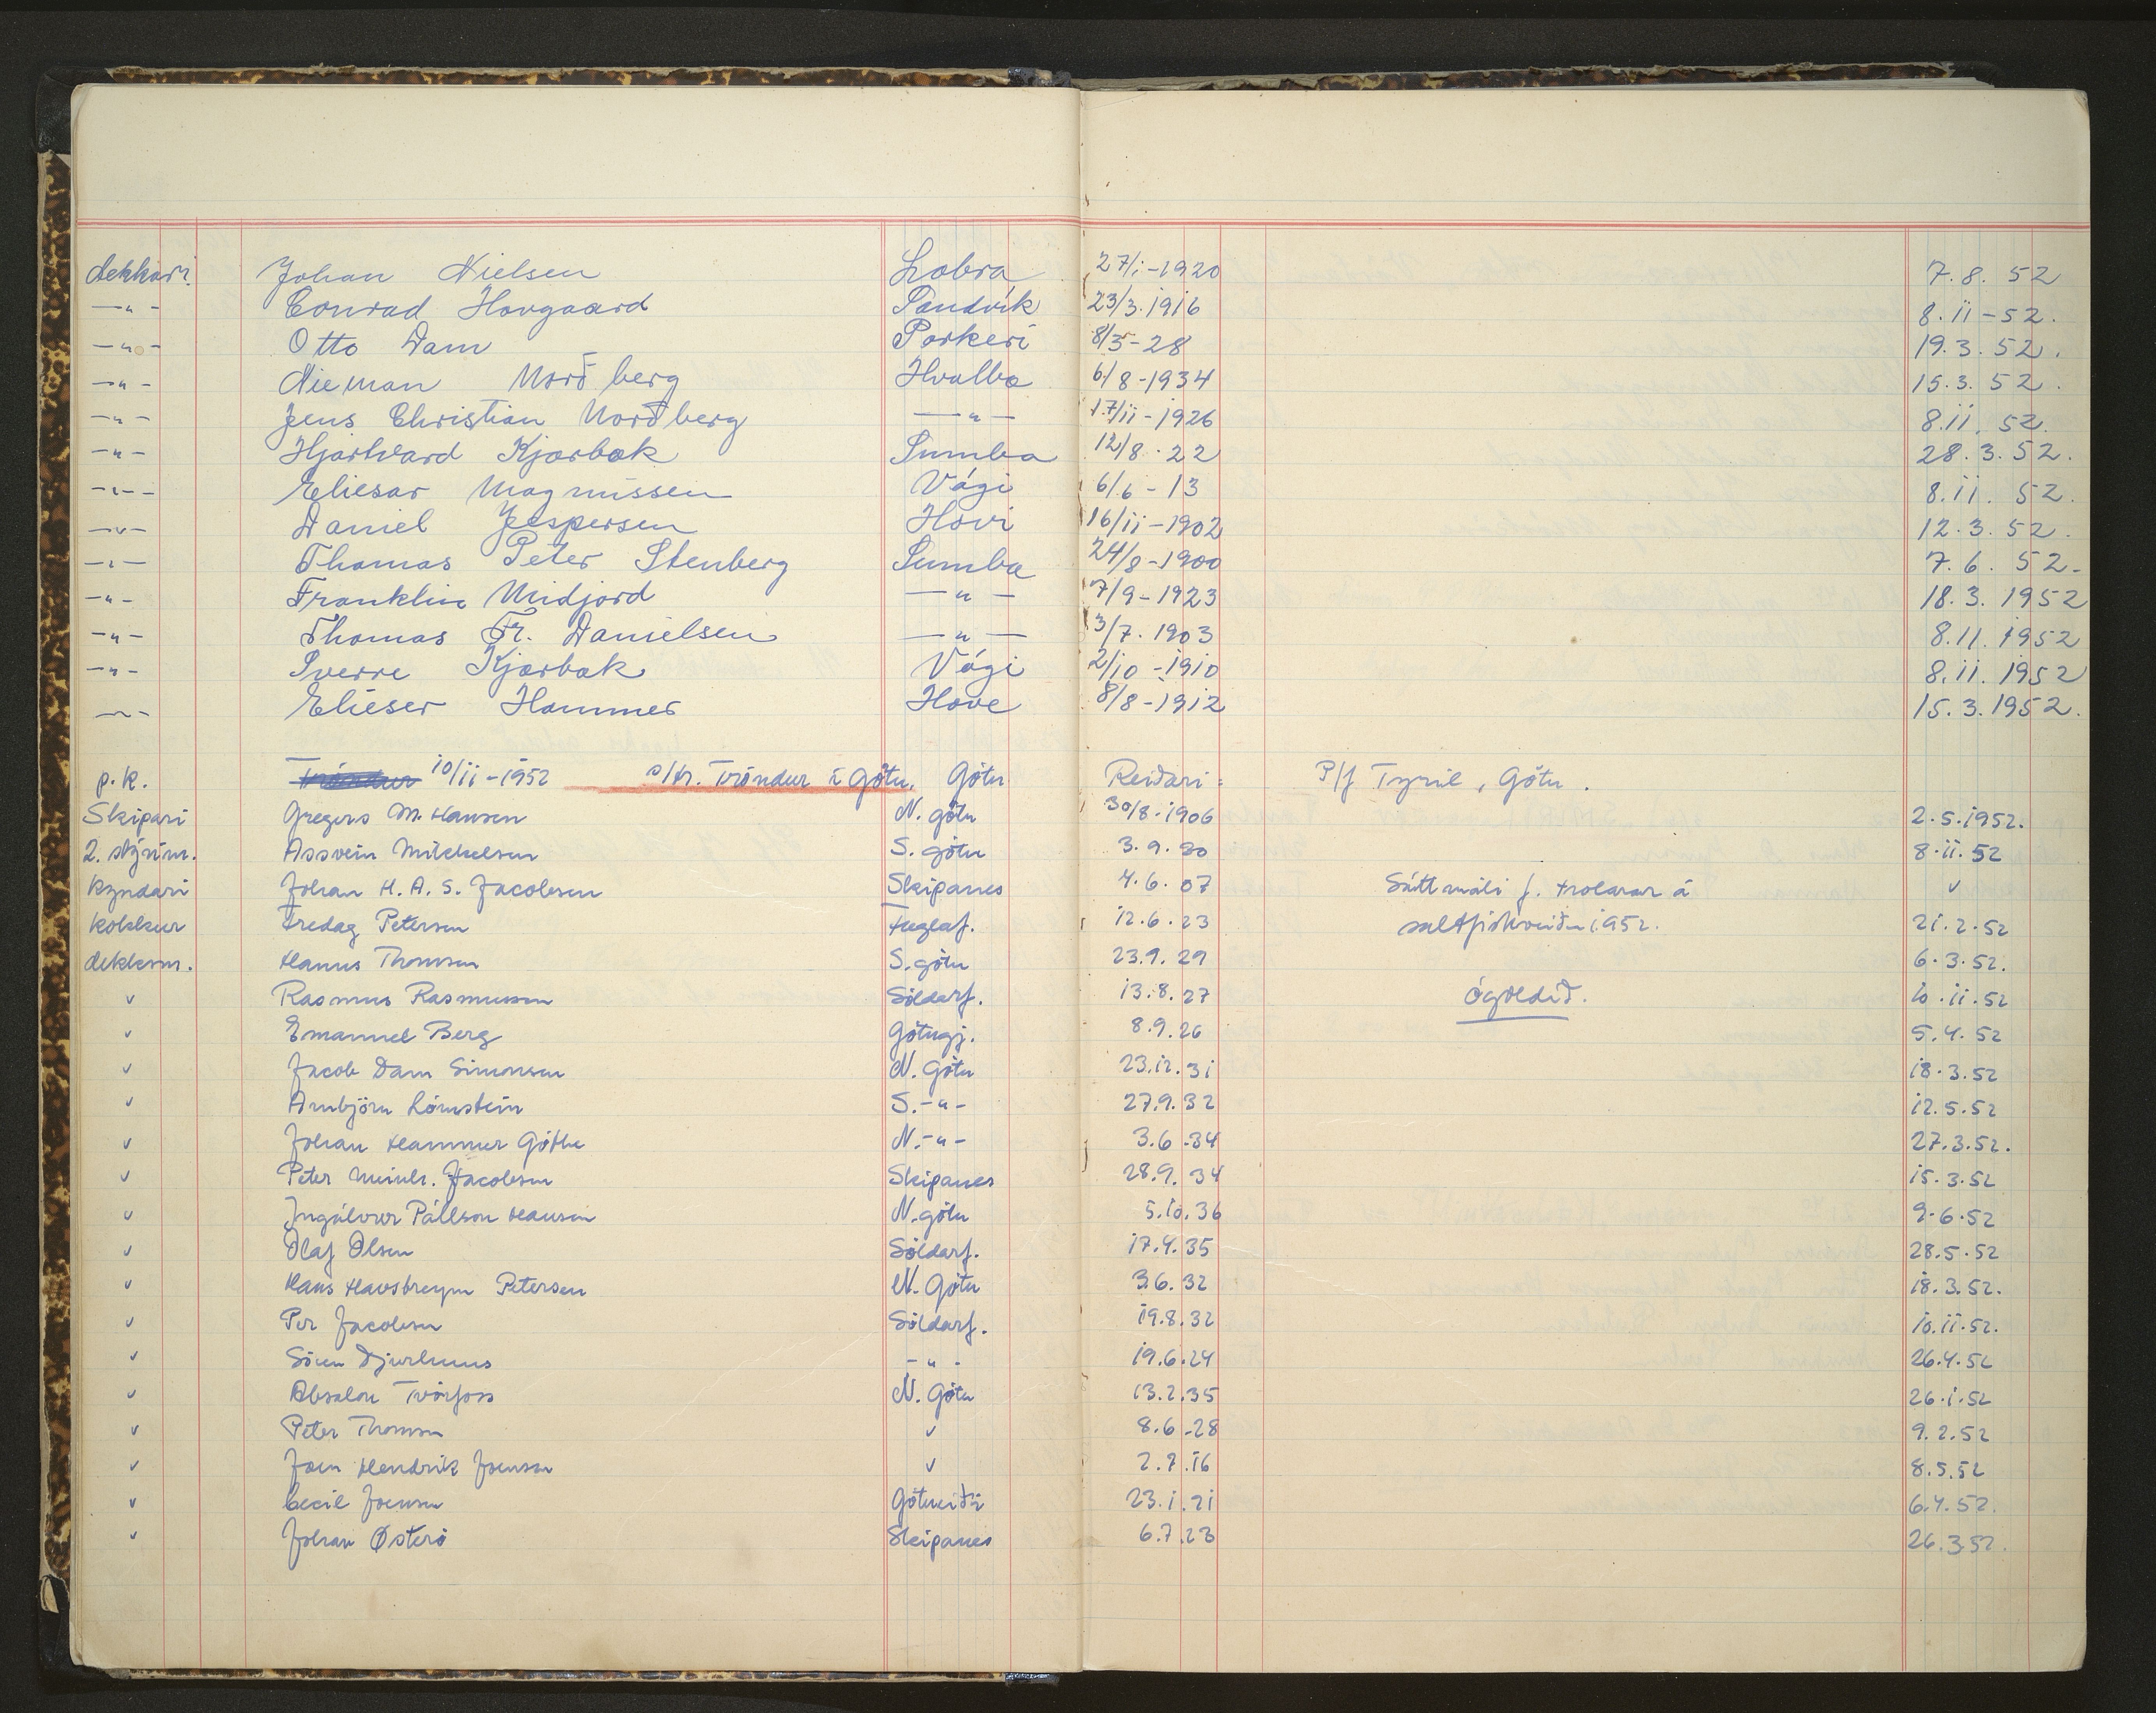 dekkari Johan Nielsen Lobra 27/1-1920 7.8. 52
—"— Conrad Hovgaard Sandvik 23/3.1916 8.11-52.
—"— Otto Dam Porkeri 8/5-28 19.3.52.
—"— Nieman Norðberg Hvalba 6/8-1934 15.3.52.
—"— Jens Christian Norðberg —"— 17/11-1926 8.11. 52.
—"— Hjartvard Kjærbæk Sumba 12/8.22 28.3.52.
—"— Eliesar Magnussen Vági 6/6-13 8.11. 52.
—"— Daniel Jespersen Hovi 16/11-1902 12.3.52.
—"— Thomas Peter Stenberg Sumba 24/8-1900 7.6. 52-
—"— Franklin Midjord —"— 7/9-1923 18.3.1952
—"— Thomas Fr. Danielsen —"— 3/7.1903 8.11.1952
—"— Sverre Kjærbæk Vági 2/10-1910 8.11.1952
—"— Elieser Hammer Hove 8/8-1912 15.3.1952.
p.k. 10/11-1952 s/tr. Tróndur í Gøtu, Gøtu Reiðari: P/f Tyril, Gøtu.
Skipari Gregers M. Hansen N. gøtu 30/8-1906 2.5.1952.
2. stýrim. Assvein Mikkelsen S. gøtu 3.9.20 8.11.52
kyndari Johan H. A. S. Jacobsen Skipanes 4.6.07 Sáttmáli f. trolarar á v
kokkur Fredag Petersen Fuglaf. 12.6.23 saltfiskveiðu 1952. 21.2.52
dekksm. Hanus Thomsen S. gøtu 23.9.29 6.3.52.
v Rasmus Rasmussen Søldarf. 13.8.27 ógoldið. 10.11.52
v Emanuel Berg Gøtugj. 8.9.26 5.4.52
v Jacob Dam Simonsen N. Gøtu 23.12.31 18.3.52
v Arnbjörn Lómstein S.-"- 27.9.32 12.5.52
v Johan Hammer Gøthe N.-"- 3.6.34 27.3.52.
v Peter Meinh. Jacobsen Skipanes 28.9.34 15.3.52
v Ingálvur Pállson Hansen N. gøtu 5.10.36 9.6.52
v Olaf Olsen Søldarf. 17.4.35 28.5.52
v Hans Havsbreyn Petersen N. Gøtu 3.6.32 18.3.52.
v Per Jacobsen Søldarf. 19.8.32 10.11.52.
v Søren Djurhuus -"- 19.6.24 26.4.52
v Absalon Tvørfoss N. Gøtu 13.2.35 26.1.52
v Peter Thomsen v 8.6-28 9.2.52
v Joen Hendrik Joensen v 2.7.16 8.5.52
v Cecil Joensen Gøtueiði 23.1.21 6.4.52.
v Johan Østerø Skipanes 6.7.23 26.3.52.